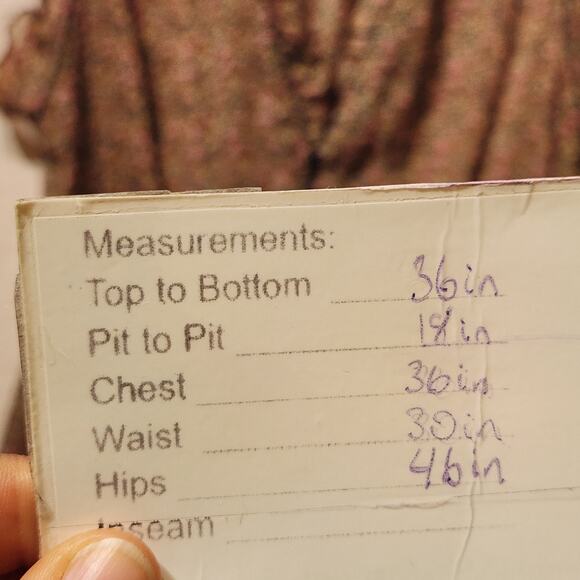 Measurements:
Top to Bottom 36in
Pit to Pit 18in
Chest 36in
Waist 30in
Hips 46in
Inseam